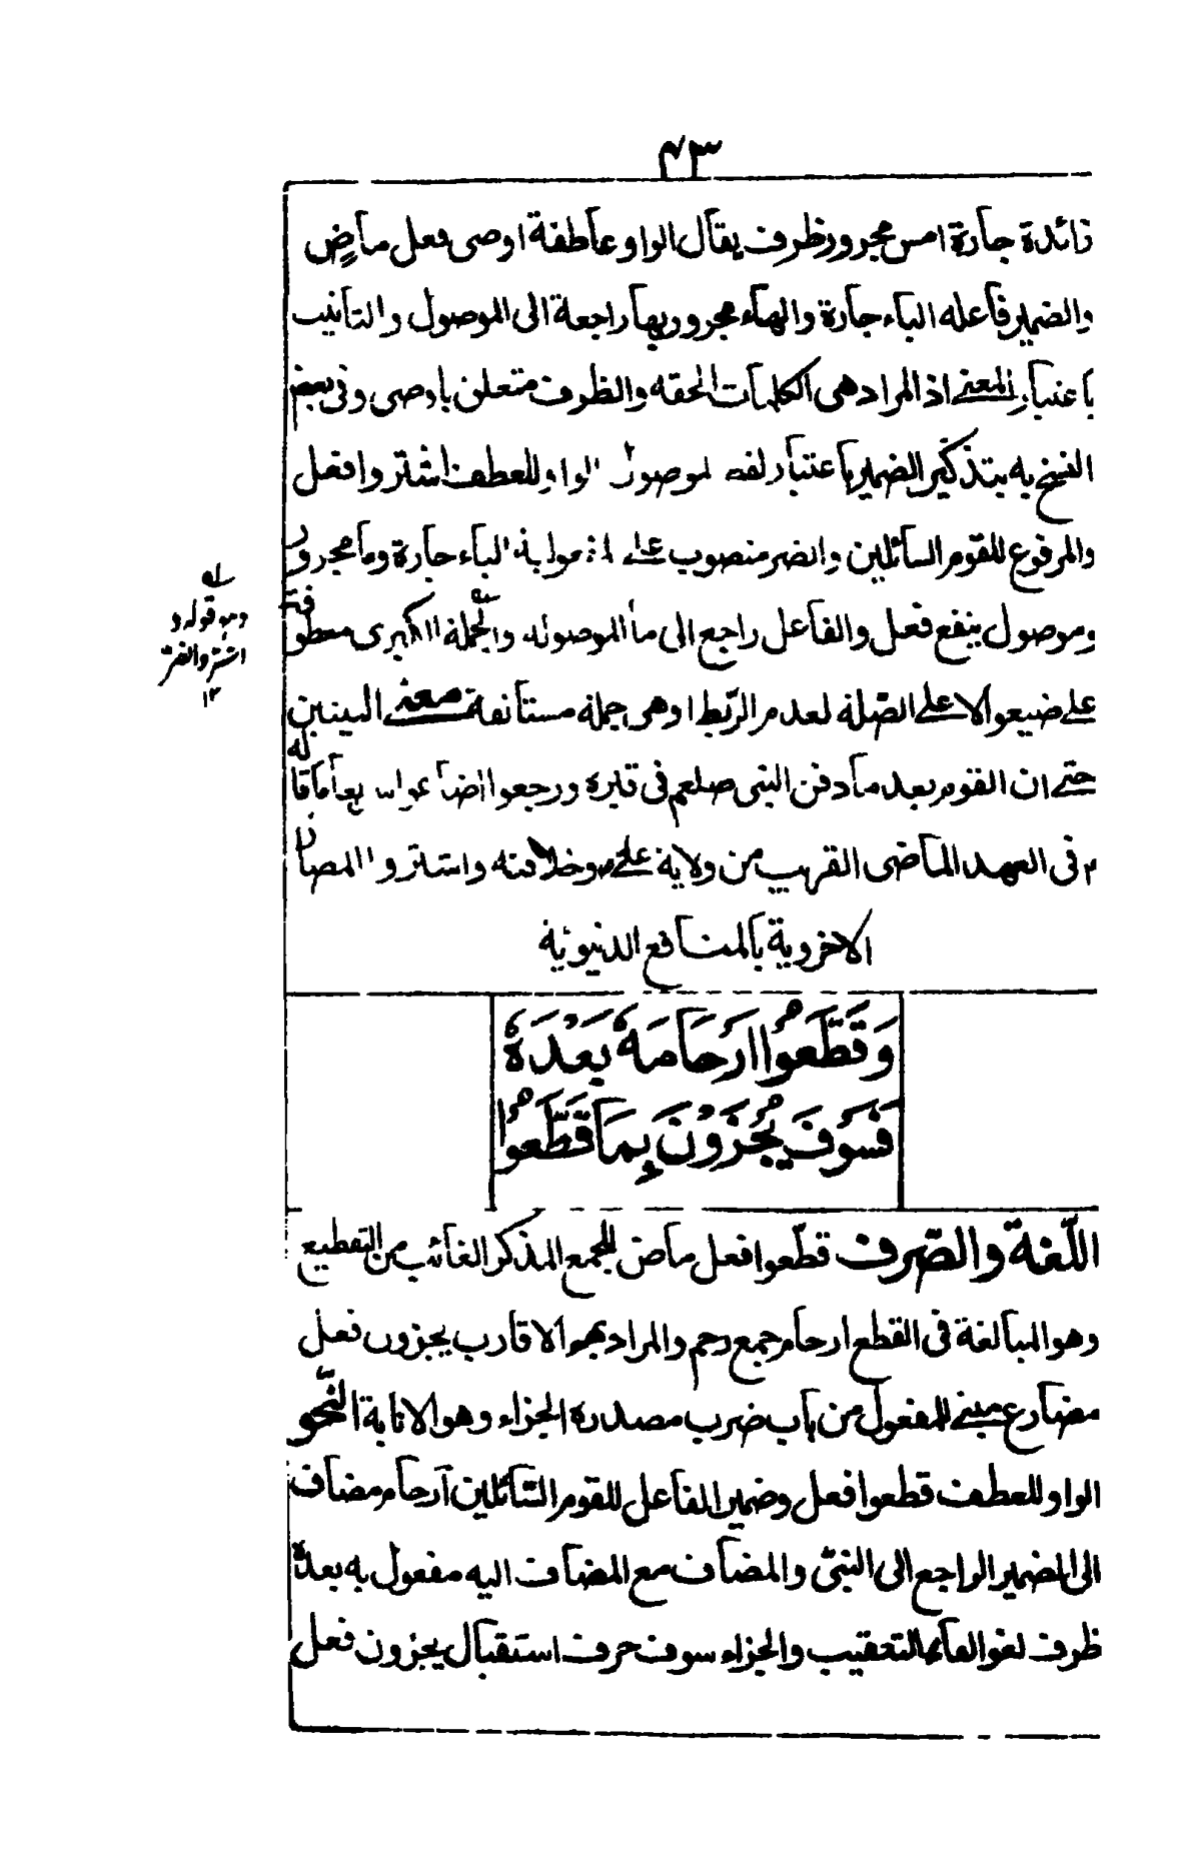 ۴۳
زائدة جارة امس مجرور ظرف يقال الواو عاطفة اوصى فعل ماضٍ
والضمير فاعله الباء جارة والهاء مجرور بها راجعة الى الموصول والتانيث
باعتبار المعنے اذ المراد هى الكلمات الحقه والظرف متعلق باوصى وفى بعض
النسخ به بتذكير الضمير باعتبار لفظ الموصول الواو للعطف اشتروا فعل
والمرفوع للقوم السائلين والضر منصوب علے انه مفعول به الباء جارة وما مجرور
وموصول ينفع فعل والفاعل راجع الى ما الموصوله والجملة الكبرى معطوفة
علے ضيعوا لا علے الصّلة لعدم الرّبط او هى جملة مستأنفة معنے البيتين
حتے ان القوم بعد ما دفن النبى صلعم فى قبره ورجعوا ضاعوا بعد ما قاله
م فى العهد الماضى القريب من ولاية علےؑ وخلافته واشتروا المضار
الاخروية بالمنافع الدنيوية
وَقَطَّعُوا اَرْحَامَهُ بَعْدَهُ
فَسَوْفَ يُجْزَوْنَ بِمَا قَطَّعُوا
اللّغة والصّرف قطّعوا فعل ماض للجمع المذكر الغائب من التقطيع
وهو المبالغة فى القطع ارحام جمع رحم والمراد بهم الاقارب يجزون فعل
مضارع مبنے للمفعول من باب ضرب مصدره الجزاء وهو الاثابة النّحو
الواو للعطف قطعوا فعل وضمير الفاعل للقوم السّائلين ارحام مضاف
الى الضمير الراجع الى النبىؐ والمضاف مع المضاف اليه مفعول به بعدهٗ
ظرف لغو الفاء للتعقيب والجزاء سوف حرف استقبال يجزون فعل
له
وهو قوله و
اشتروا الضرّ
۱۲